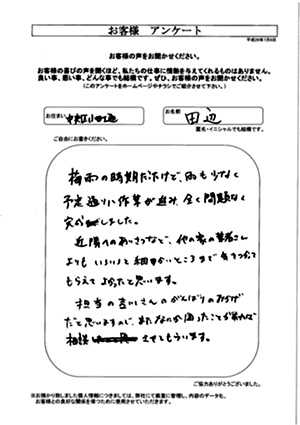 お客様 アンケート
平成26年7月6日
お客様の声をお聞かせください。
お客様の喜びの声を聞くほど、私たちの仕事に情熱を与えてくれるものはありません。
良い事、悪い事、どんな事でも結構です。ぜひ、お客様の声をお聞かせ下さい。
(このアンケートをホームページやチラシでご紹介させて下さい。)
お住まい 中央区
お名前 田辺
匿名・イニシャルでも結構です。
ご自由にお書きください。
梅雨の時期だけど、雨も少なく
予定通りに作業が進み、全く問題なく
完了しました。
近隣へのあいさつなど、他の家の
よりも いろいろと細かいところまで気をつかって
もらえてよかったと思います。
担当の さんのがんばりのおかげ
だと思いますので、またなにか困ったことがあれば
相談 させてもらいます。
ご協力ありがとうございました。
※お預かり致しました個人情報につきましては、弊社にて厳重に管理し、内容のデータ化、
お客様との良好な関係を保つために使用させていただきます。